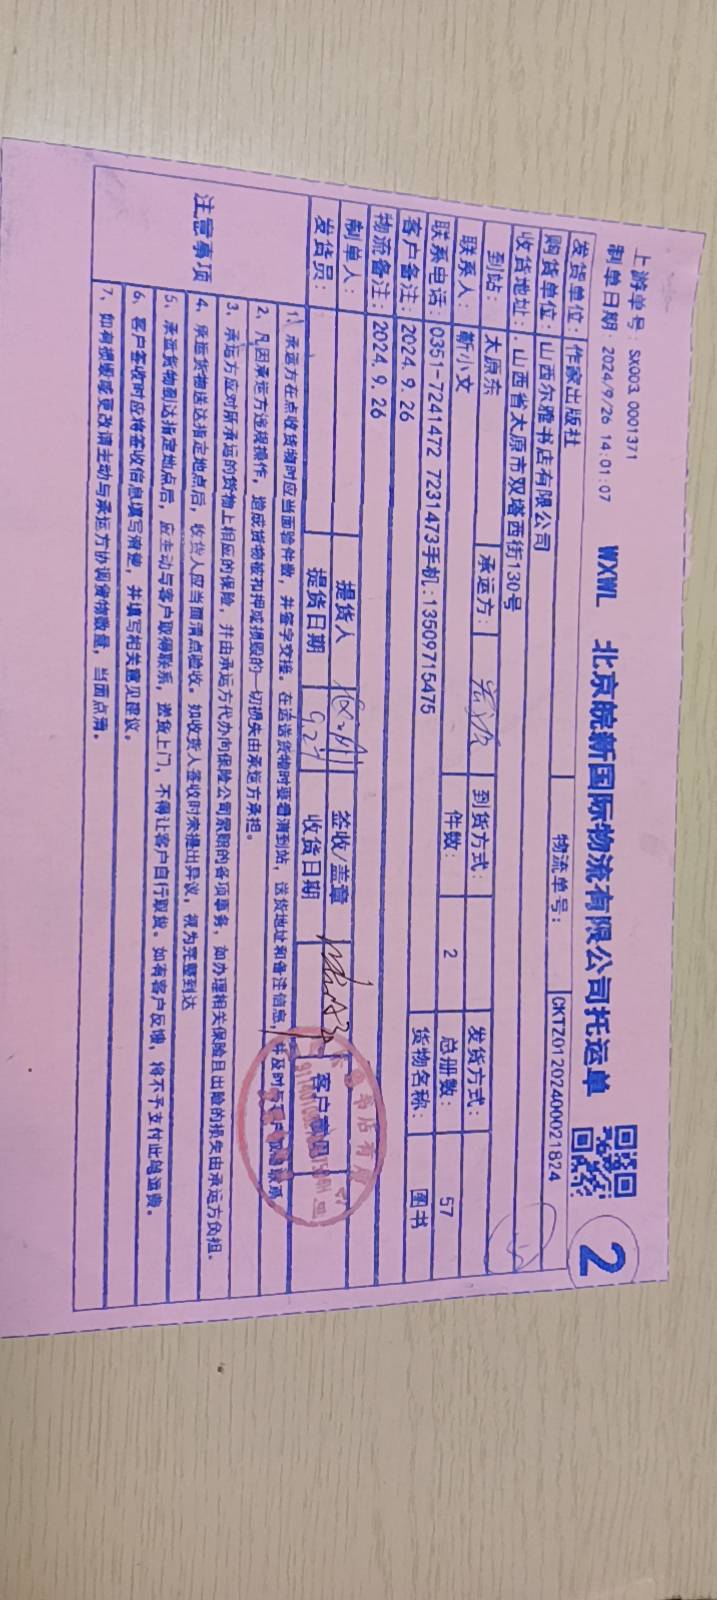 上游单号: SK003 0001371
制单日期: 2024/9/26 14:01:07
WXWL 北京皖新国际物流有限公司托运单
2
发货单位: 作家出版社
物流单号: CKTZ01202400021824
购货单位: 山西尔雅书店有限公司
收货地址: 山西省太原市双塔西街130号
到站: 太原东 承运方: 到货方式: 发货方式:
联系人: 靳小文 件数: 2 总册数: 57
联系电话: 0351-7241472 7231473手机:13509715475 货物名称: 图书
客户备注: 2024.9.26
物流备注: 2024.9.26
制单人: 提货人 签收/盖章 客户
发货员: 提货日期 9.27 收货日期
注意事项
1、承运方在点收货物时应当面验件数,并签字交接。在运送货物时要看清到站,送货地址和备注信息,并及时与客户取得联系
2、凡因承运方违规操作,造成货物被扣押或损毁的一切损失由承运方承担。
3、承运方应对所承运的货物上相应的保险,并由承运方代办向保险公司索赔的各项事务,如办理相关保险且出险的损失由承运方负担。
4、承运货物送达指定地点后,收货人应当面清点验收。如收货人签收时未提出异议,视为完整到达
5、承运货物到达指定地点后,应主动与客户取得联系,送货上门,不得让客户自行取货。如有客户反馈,将不予支付此趟运费。
6、客户签收时应将签收信息填写清楚,并填写相关意见建议。
7、如有损毁或更改请主动与承运方协调货物数量,当面点清。
书店有限